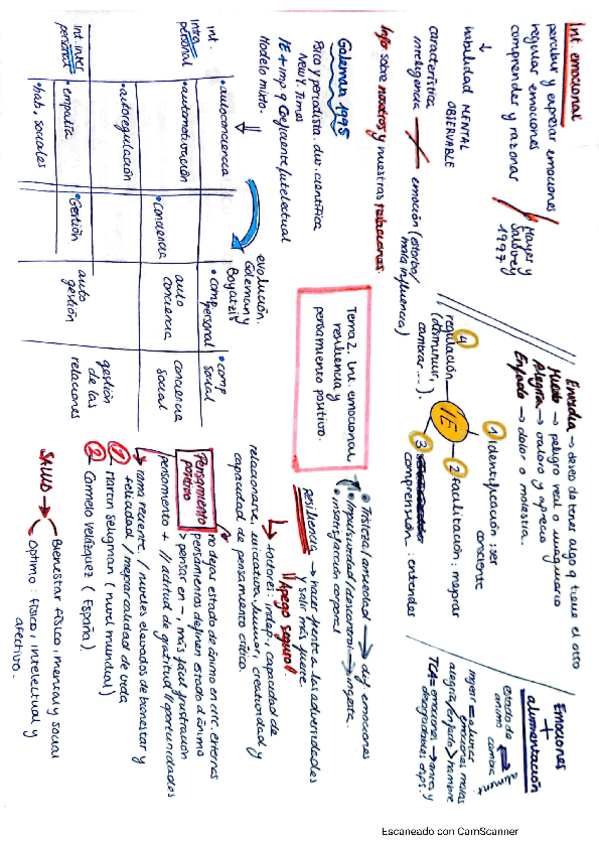 Int emocional
percibir y expresar emociones
regular emociones
comprender y razonar
Mayer y
Salovey
1997
↓
habilidad MENTAL
OBSERVABLE
característica
inteligencia
emoción (estorbo/
mala influencia)
Info sobre nosotros y nuestras relaciones.
Goleman 1995
Psico y periodista. div. científica
New y. Times
IE + imp q Coeficiente intelectual
Modelo mixto.
evolución.
Goleman y
Boyatzis
int.
intra
personal
int. inter
personal
• autoconciencia
• automotivación
• autorregulación
• empatía
• hab. sociales
• conciencia
• Gestión
• comp
personal
auto
conciencia
auto
gestión
• comp
social
conciencia
social
gestión
de las
relaciones
Tema 2. Int. emocional,
resiliencia y
pensamiento positivo.
Envidia → deseo de tener algo q tiene el otro
Miedo → peligro real o imaginario
Alegría → valoro y aprecio
Enfado → dolor o molestia.
IE
1 identificación: ser
consciente
2 facilitación: mejorar
3 comprensión: entender
4 regulación
(disminuir,
cambiar...).
Emociones
+
alimentación
estado de
ánimo
cambia
ingerir = aliviar
emociones malas
alegría/enfado > hambre
TCA = emociones → ansia y
desagradables
• Tristeza/ansiedad → dif emociones
• Impulsividad/descontrol → ingesta.
• insatisfacción corporal
Resiliencia → hacer frente a las adversidades
y salir más fuerte
Apego seguro
→ factores: indep., capacidad de
relacionarse, iniciativa, humor, creatividad y
capacidad de pensamiento crítico.
Pensamiento
positivo
no dejar estado de ánimo en circ. externas
pensamientos definen estado d ánimo
> pensar en -, más fácil frustración
pensamiento + // actitud de gratitud / oportunidades
→ tema reciente / niveles elevados de bienestar y
felicidad / mejor calidad de vida
1 Martin Seligman (nivel mundial)
2 Carmelo Velázquez (España)
SALUD → Bienestar físico, mental y social
→ Óptimo: físico, intelectual y
afectivo.
Escaneado con CamScanner